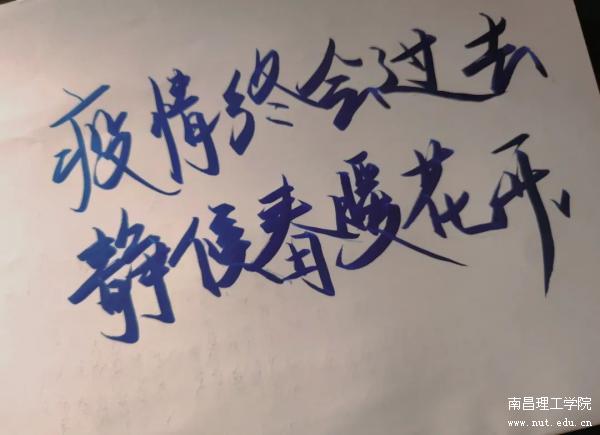 疫情终会过去
静候春暖花开
南昌理工学院
www.nut.edu.cn